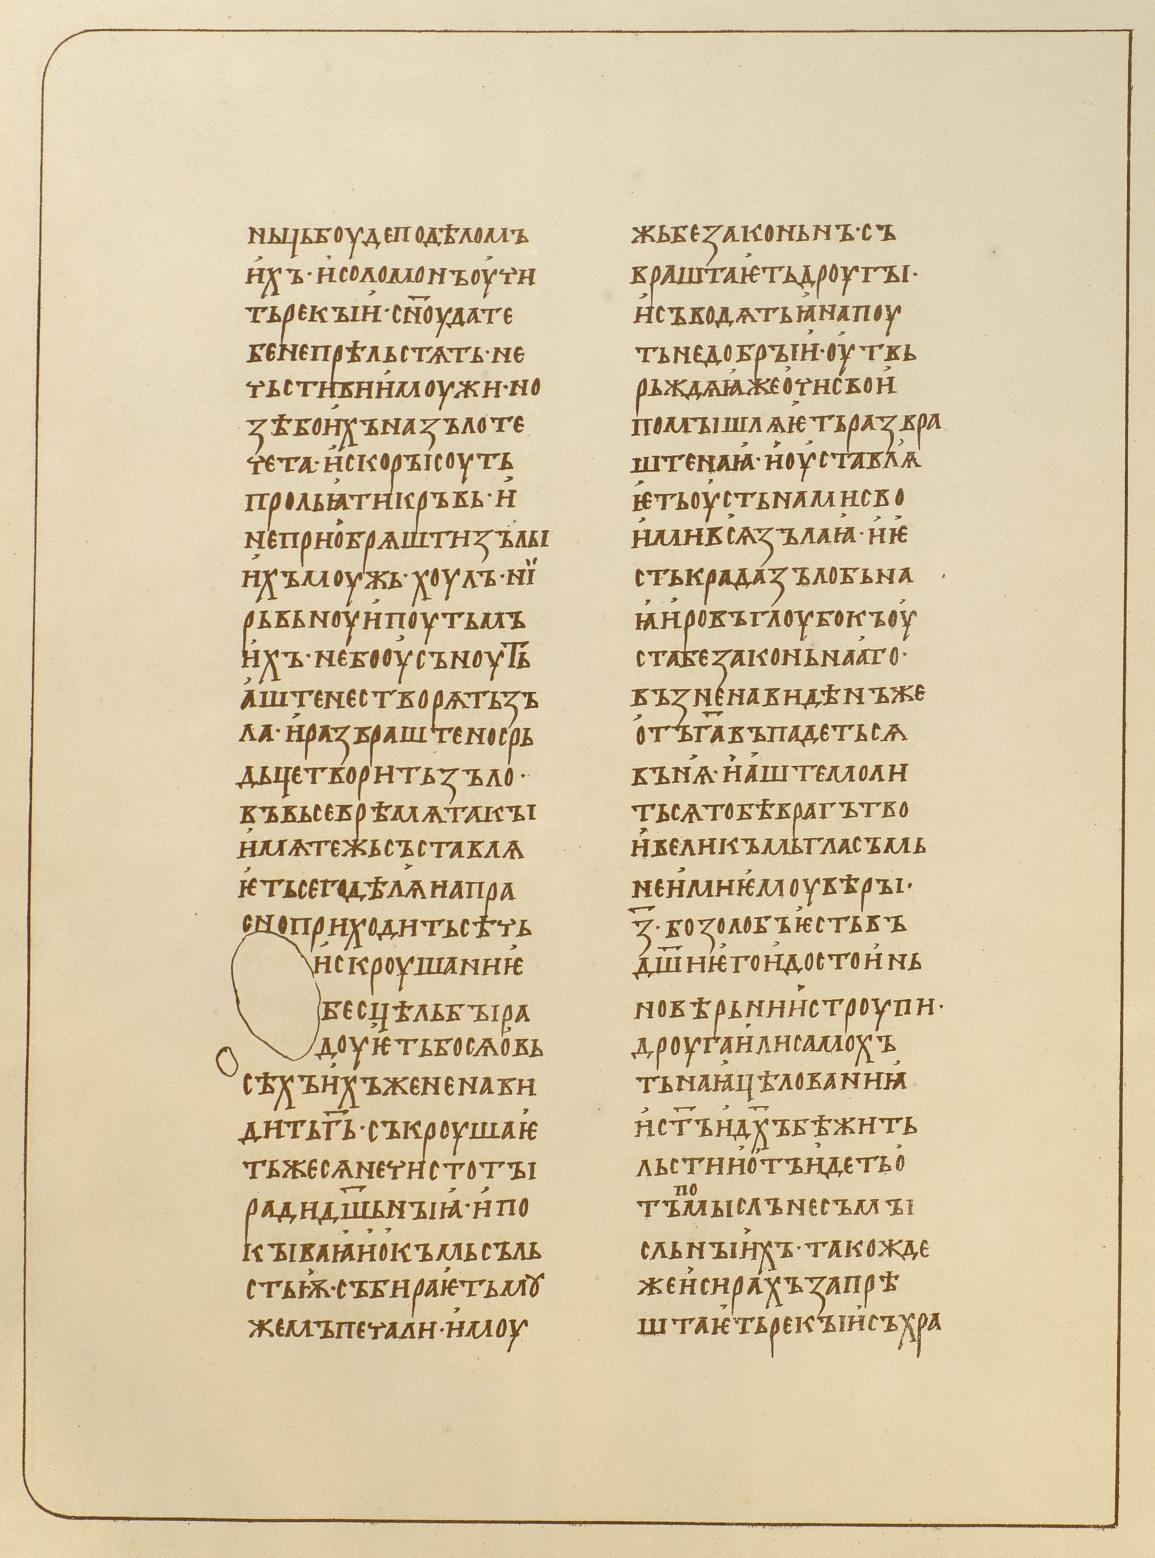 ньць боудеподѣломъ
и҆хъ· и҆соломонъоу҆чи
тьрекыи҆· сн҃оудате
бенепрѣльстѧть· не
чьстивии҆моужи· но
зѣбои҆хъназълоте
чета· и҆скорысоуть
прольꙗтикръвь· и҆
неприо҆брѧштизълы
и҆хъмоужь· хоулъ· нї
рьвьноуи҆поутьмъ
и҆хъ· небооу҆съноуть
а҆штенестворѧтьзъ
ла· и҆развраштеносрь
дьцетворитьзъло·
въвьсеврѣмѧтакы
и҆мѧтежьсъставлѧ
ѥтьсегодѣлꙗнапра
сноприходитьсѣчь
и҆скроушаниѥ
бесцѣльбыра
доуѥтьбосѧо҆вь
сѣхъи҆хъжененави
дитьг҃ь· съкроушаѥ
тьжесѧнечистоты
радид҃шьныꙗ· и҆по
кываꙗи҆о҆къмьсъль
стьѭ· събираѥтьмꙋ
жемъпечали· и҆моу
жьбезаконьнъ· съ
враштаѥтьдроугы·
и҆съводѧтьꙗнапоу
тьнедобрыи҆· оу҆твь
рьждѧꙗжео҆чисвои҆
помышлѧѥтьразвра
штенаꙗ· и҆оу҆ставлѧ
ѥтьоу҆стьнамисво
и҆мивсѧзълаꙗ· и҆ѥ
стькрадазълобьна
ꙗи҆ровъглоубокъоу҆
стабезаконьнааго·
възненавидѣнъже
о҆тъг҃авъпадетьсѧ
вънѧ· и҆а҆штемоли
тьсѧтобѣврагътво
и҆великъмьгласъмь
неи҆миѥмоувѣры·
з҃· бозолобъѥстьвъ
дш҃иѥгои҆достои҆нь
новѣрьнии҆строупи·
дроугаи҆лисамохъ
тьнаꙗцѣлованиꙗ
и҆ст҃ъи҆дх҃ъбѣжить
льстиио҆тъи҆детьо҆
тъпомыслънесъмы
сльныи҆хъ· такожде
жеи҆сирахъзапрѣ
штаѥтьрекыи҆съхра